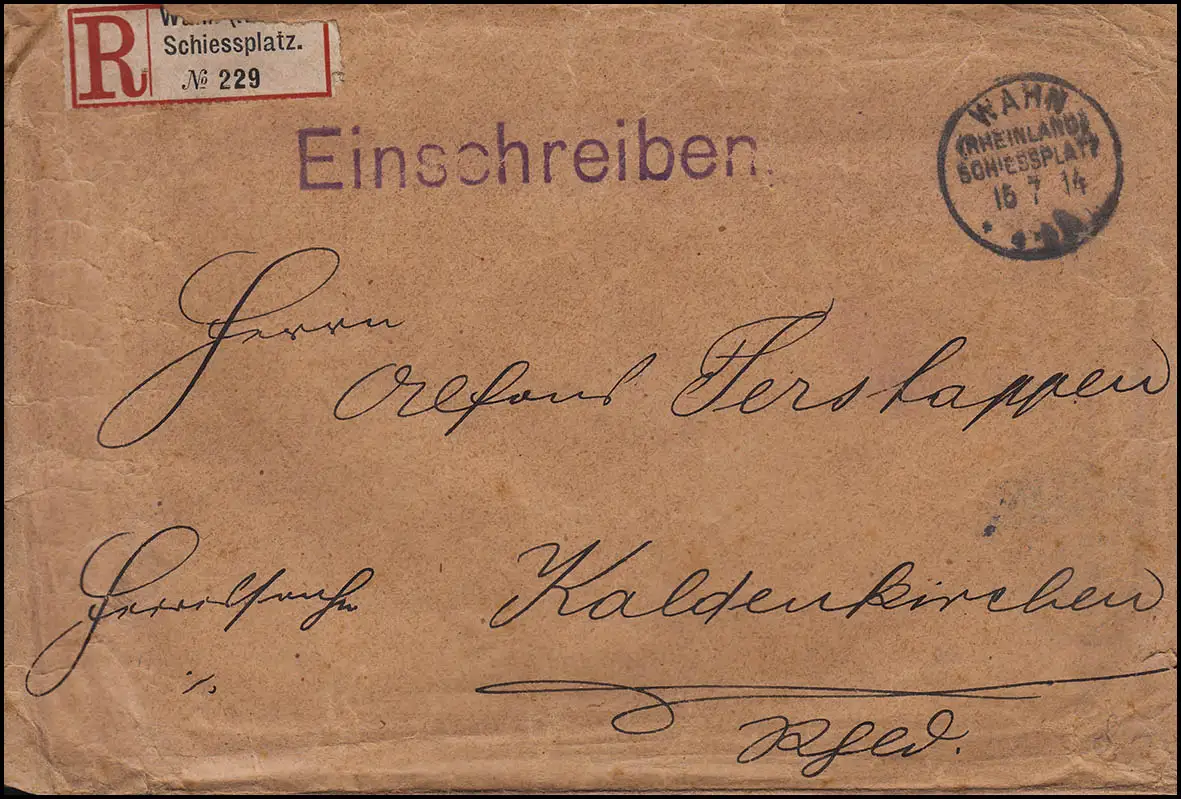 R
Schiessplatz.
№ 229
Einschreiben.
WAHN
(RHEINLAND)
SCHIESSPLATZ
16 7 14
Herrn
Alfons Terstappen
Kaldenkirchen
Rhld.